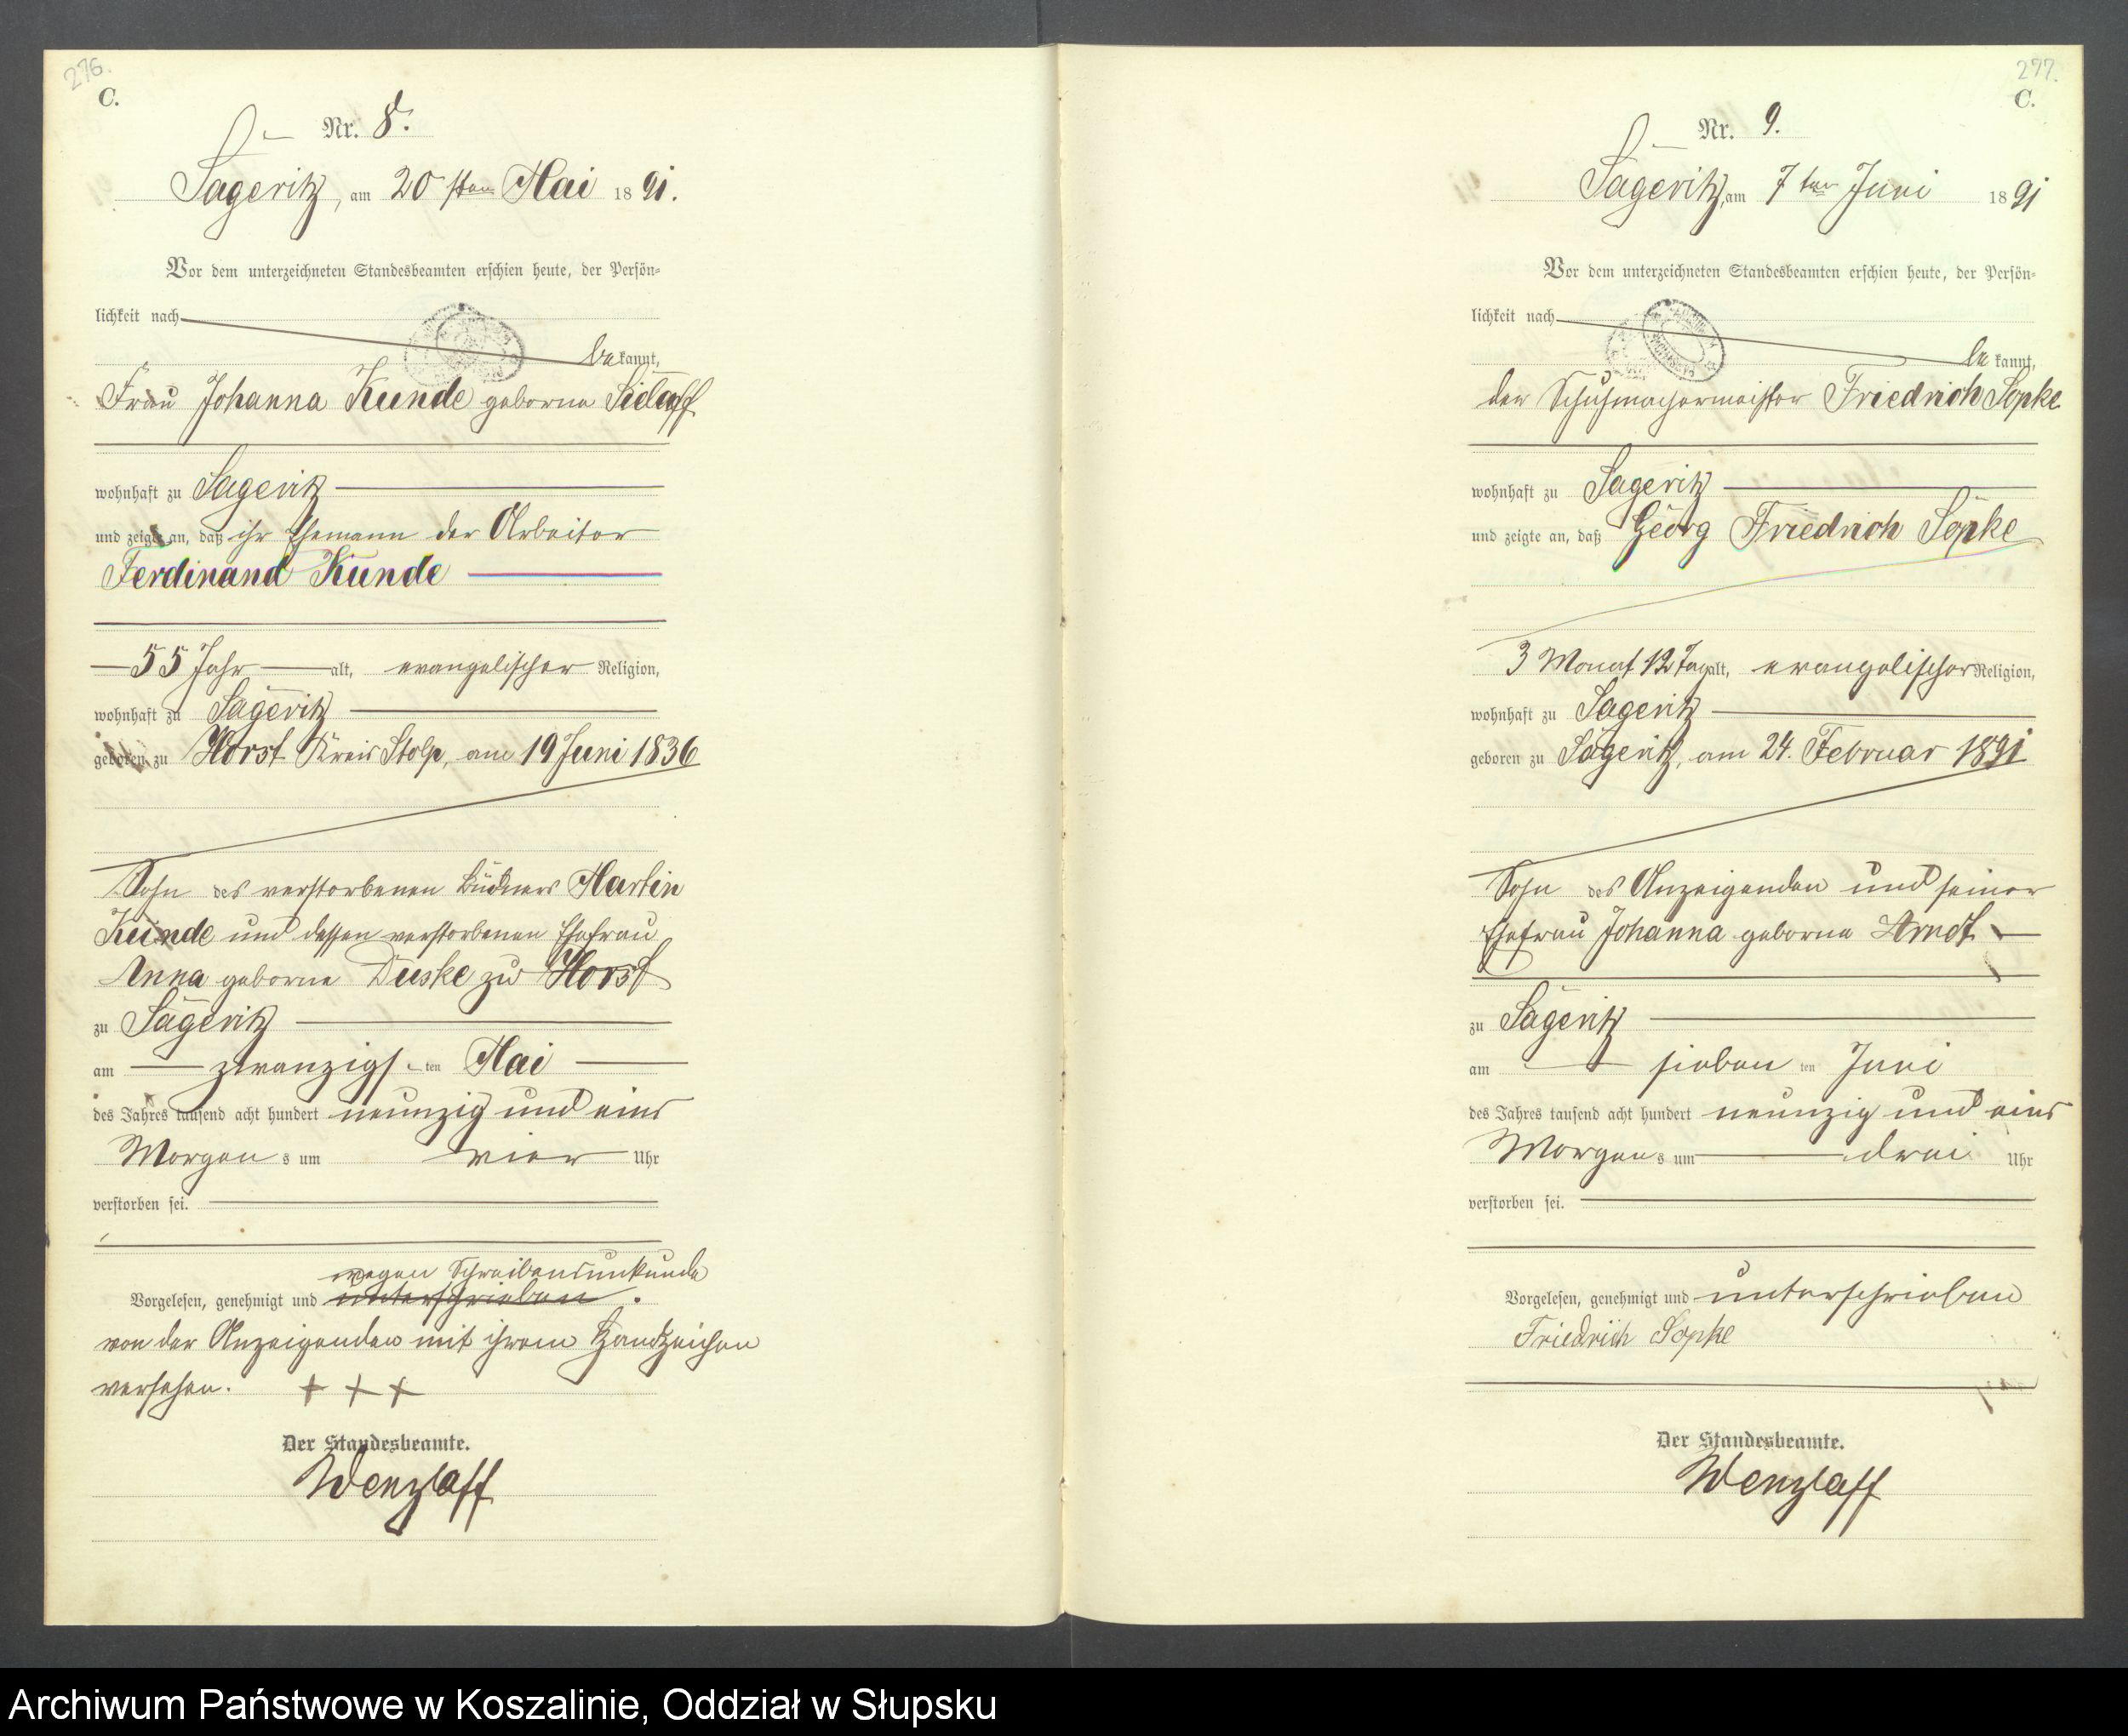 276.
C.
Nr. 8.
Sageritz, am 20sten Mai 1891.
Vor dem unterzeichneten Standesbeamten erschien heute, der Persön-
lichkeit nach
bekannt,
Frau Johanna Kunde geborne Sielaff
wohnhaft zu Sageritz
und zeigte an, daß ihr Ehemann der Arbeiter
Ferdinand Kunde
55 Jahr alt, evangelischer Religion,
wohnhaft zu Sageritz
geboren zu Horst Kreis Stolp, am 19 Juni 1836
Sohn des verstorbenen Büdners Martin
Kunde und dessen verstorbenen Ehefrau
Anna geborne Duske zu Horst
zu Sageritz
am zwanzigsten Mai
des Jahres tausend acht hundert neunzig und eins
Morgens um vier Uhr
verstorben sei.
wegen Schreibensunkunde
Vorgelesen, genehmigt und unterschrieben.
von der Anzeigenden mit ihrem Handzeichen
versehen. + + +
Der Standesbeamte.
Wenzlaff
277.
C.
Nr. 9.
Sageritz, am 7ten Juni 1891
Vor dem unterzeichneten Standesbeamten erschien heute, der Persön-
lichkeit nach
bekannt,
der Schuhmachermeister Friedrich Sopke
wohnhaft zu Sageritz
und zeigte an, daß Georg Friedrich Sopke
3 Monat 12 Tag alt, evangelischer Religion,
wohnhaft zu Sageritz
geboren zu Sageritz, am 24. Februar 1891
Sohn des Anzeigenden und seiner
Ehefrau Johanna geborne Arndt
zu Sageritz
am siebenten Juni
des Jahres tausend acht hundert neunzig und eins
Morgens um drei Uhr
verstorben sei.
Vorgelesen, genehmigt und unterschrieben
Friedrich Sopke
Der Standesbeamte.
Wenzlaff
Archiwum Państwowe w Koszalinie, Oddział w Słupsku